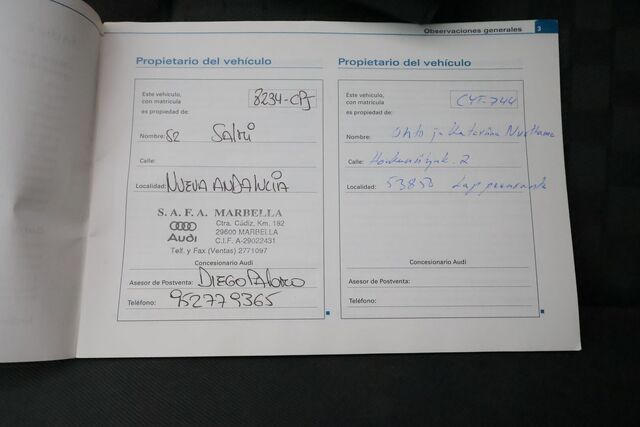 Observaciones generales 3
Propietario del vehículo
Este vehículo,
con matrícula
8234-CPJ
es propiedad de:
Nombre:
Calle:
Localidad: NUEVA ANDALUCIA
S. A. F. A. MARBELLA
Audi
Ctra. Cádiz, Km. 182
29600 MARBELLA
C.I.F. A-29022431
Telf. y Fax (Ventas) 2771097
Concesionario Audi
Asesor de Postventa: DIEGO
Teléfono: 952779365
Propietario del vehículo
Este vehículo,
con matrícula
CYT-744
es propiedad de:
Nombre: Ohto ja Katariina
Calle:
Localidad: 53850 Lappeenranta
Concesionario Audi
Asesor de Postventa:
Teléfono: